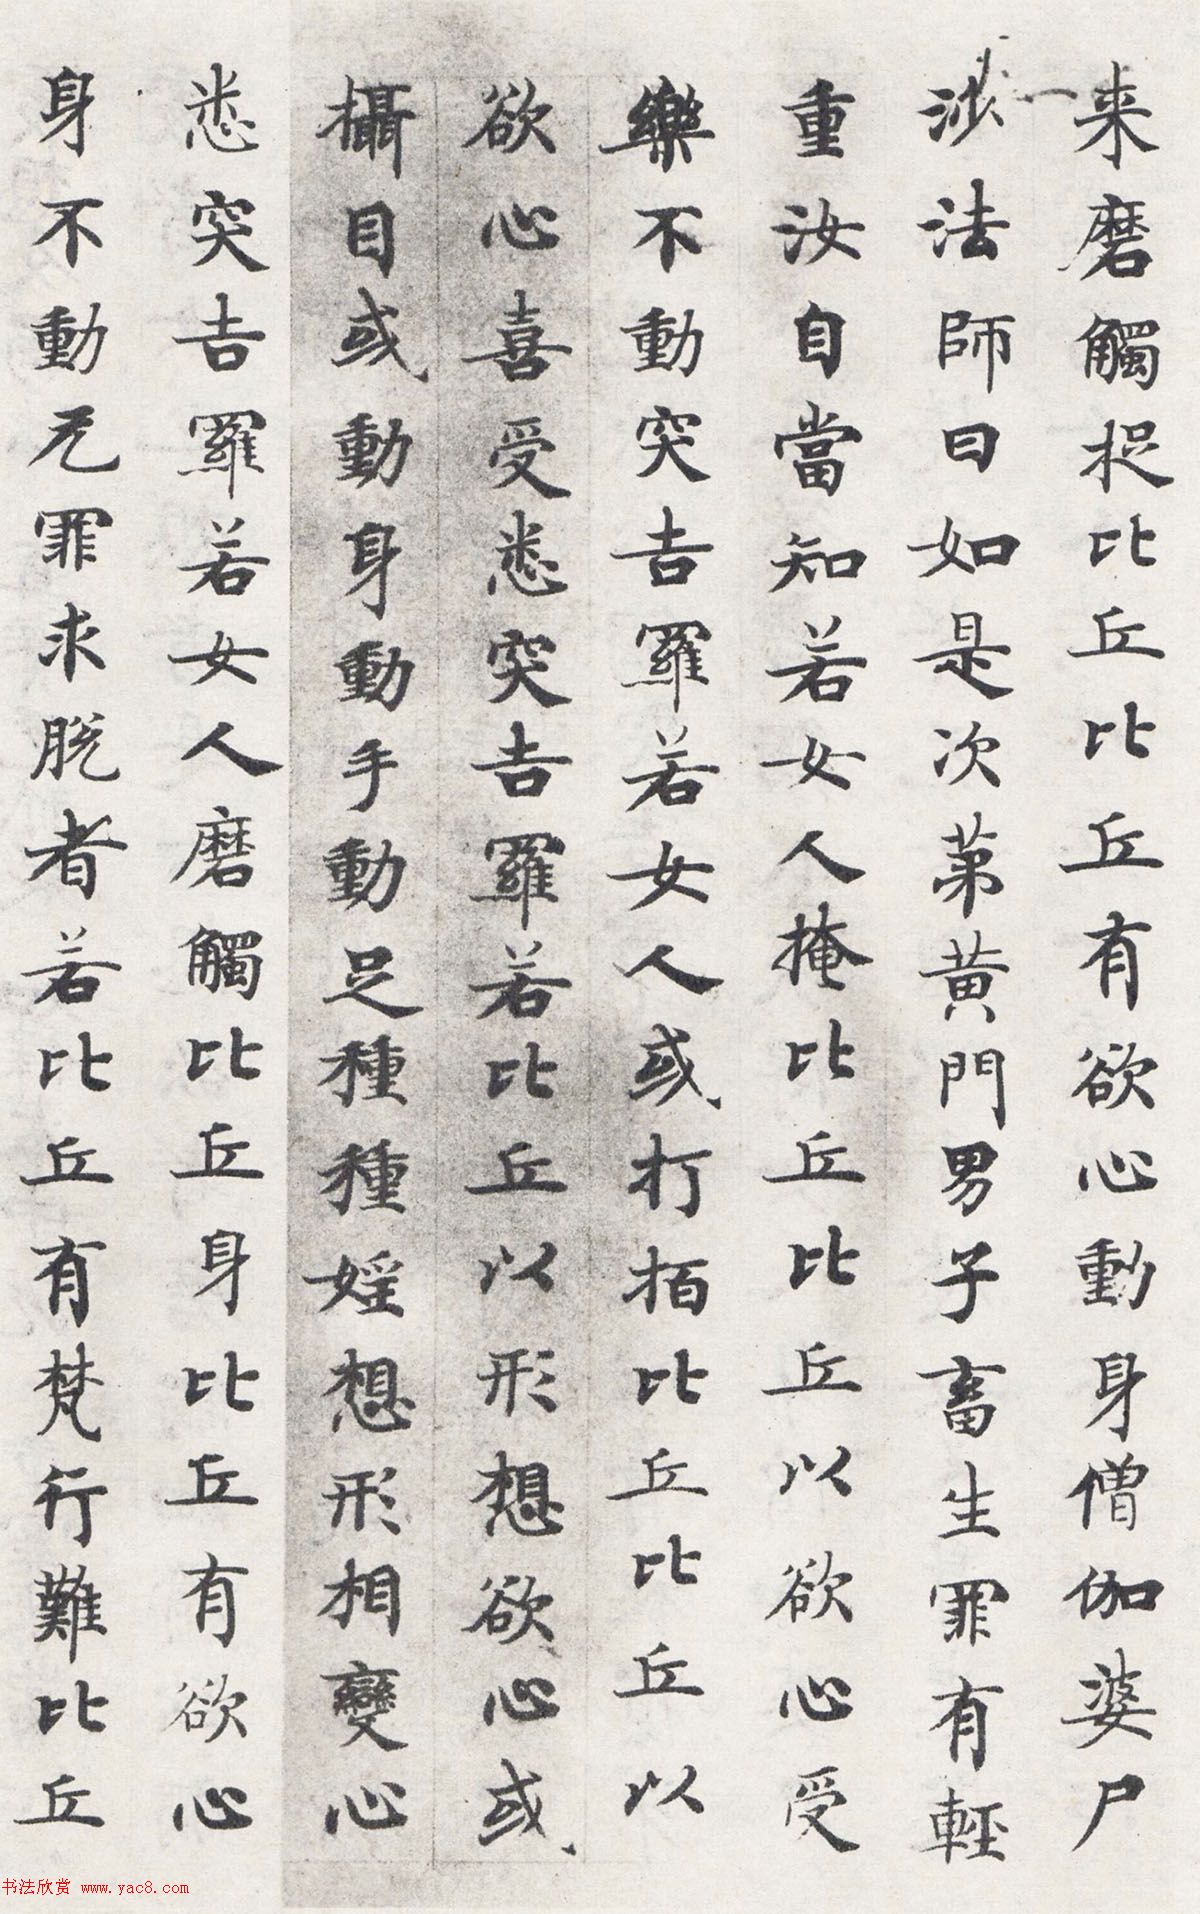 来磨觸捉比丘比丘有欲心動身僧伽婆尸
沙法師曰如是次第黄門男子畜生罪有輕
重汝自當知若女人掩比丘比丘以欲心受
樂不動突吉羅若女人或打拍比丘比丘以
欲心喜受悉突吉羅若比丘以形想欲心或
攝目或動身動手動足種種婬想形相變心
悉突吉羅若女人磨觸比丘身比丘有欲心
身不動无罪求脫者若比丘有梵行難比丘
书法欣赏 www.yac8.com